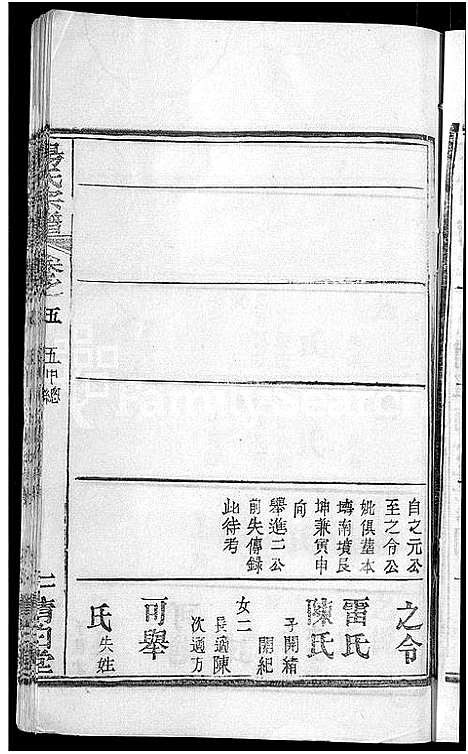 自之元公
至之令公
妣俱塟本
塆南墳艮
坤兼寅申
向
舉進二公
前失傳錄
此待考
之令
雷氏
陳氏
子開精
開紀
女二
長適陳
次適方
可舉
氏失姓
氏宗譜
卷之五
五甲總
清白堂
familysearch